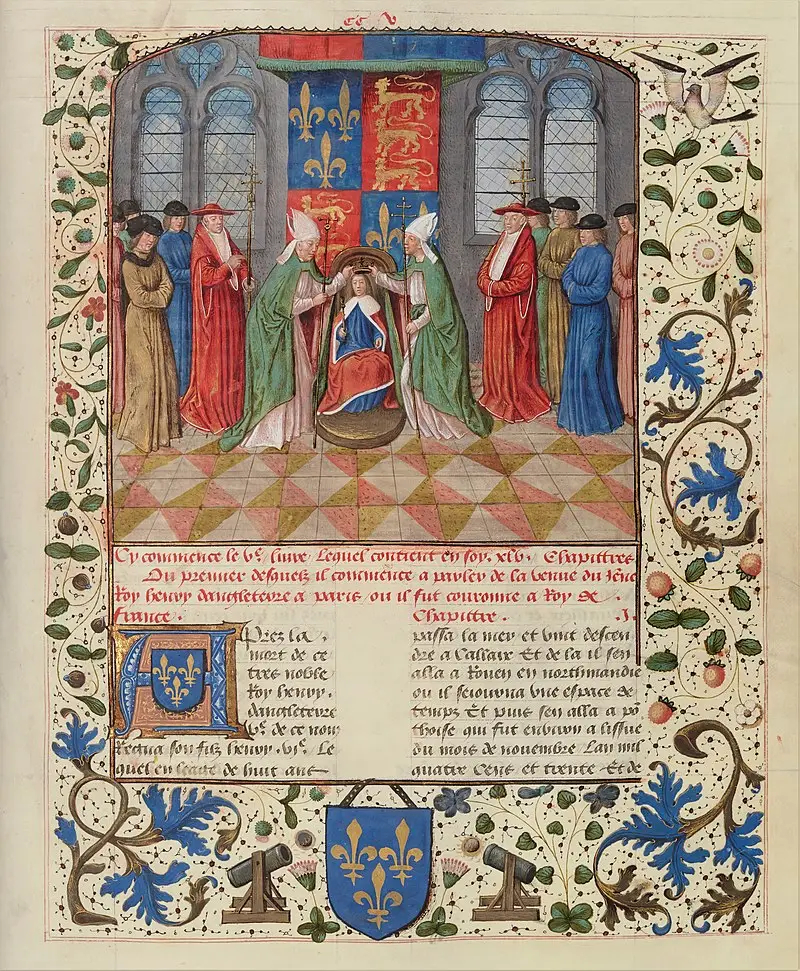 CC V
Cy commence le Ve. liure Lequel contient en soy. xlv. Chapittres
Du premier desquelz il commence a parler de la venue du
Roy henry dangleterre a paris ou il fut couronne a Roy de
france . Chapittre . I.
APrez la
mort de ce
tres noble
Roy henry.
dangleterre
Ve de ce nom
Regna son filz henry. VIe. Le
quel en leage de huit ans
passa la mer et vint descen
dre a Callaix Et de la il sen
alla a Rouen en northmandie
ou il seiourna vne espace de
temps Et puis sen alla a põ
thoise qui fut enuiron a lissue
du mois de nouembre Lan mil
quatre Cens et trente Et de